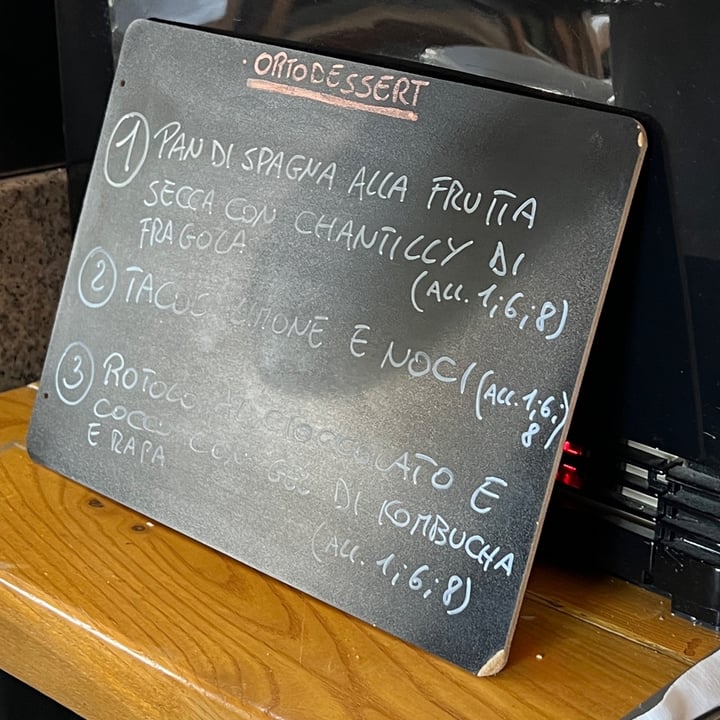 · ORTODESSERT
1 PAN DI SPAGNA ALLA FRUTTA
SECCA CON CHANTILLY DI
FRAGOLA
(ALL. 1;6;8)
2 TACOS LIMONE E NOCI (ALL. 1;6;
8)
3 ROTOLO CIOCCOLATO E
COCCO CON GEL DI KOMBUCHA
E RAPA
(ALL. 1;6;8)